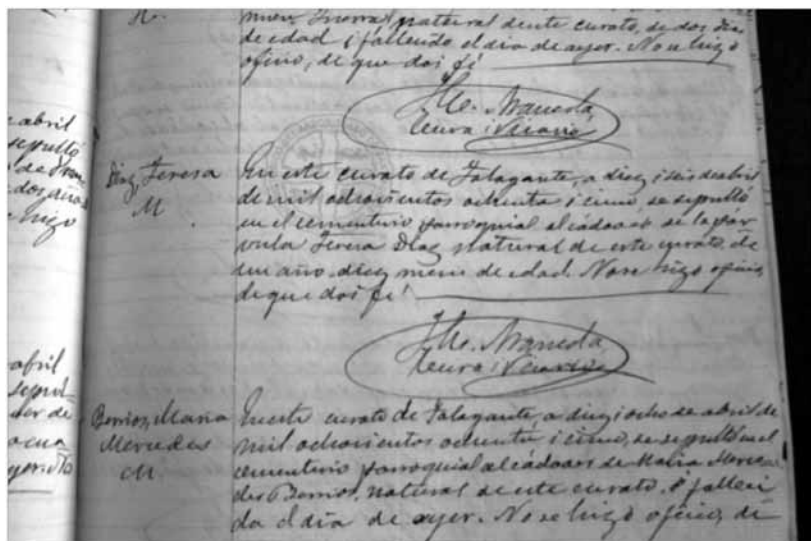 H.
natural de este curato, de dos dias
de edad i fallecido el dia de ayer. No se hizo
oficio, de que doi fé
Araneda
Cura i Vicario
abril
sepultó
dos años
hizo
Diaz, Teresa
M
En este curato de Talagante, a diez i seis de abril
de mil ochocientos ochenta i cinco, se sepultó
en el cementerio parroquial el cádaver de la par
vula Teresa Diaz natural de este curato, de
un año diez meses de edad. No se hizo oficio,
de que doi fé
Araneda
Cura i Vicario
abril
sepul-
de
Berrios, Maria
Mercedes
M.
En este curato de Talagante, a diez i ocho de abril de
mil ochocientos ochenta i cinco, se sepultó en el
cementerio parroquial el cádaver de Maria Merce
des Berrios, natural de este curato, i falleci
da el dia de ayer. No se hizo oficio, de